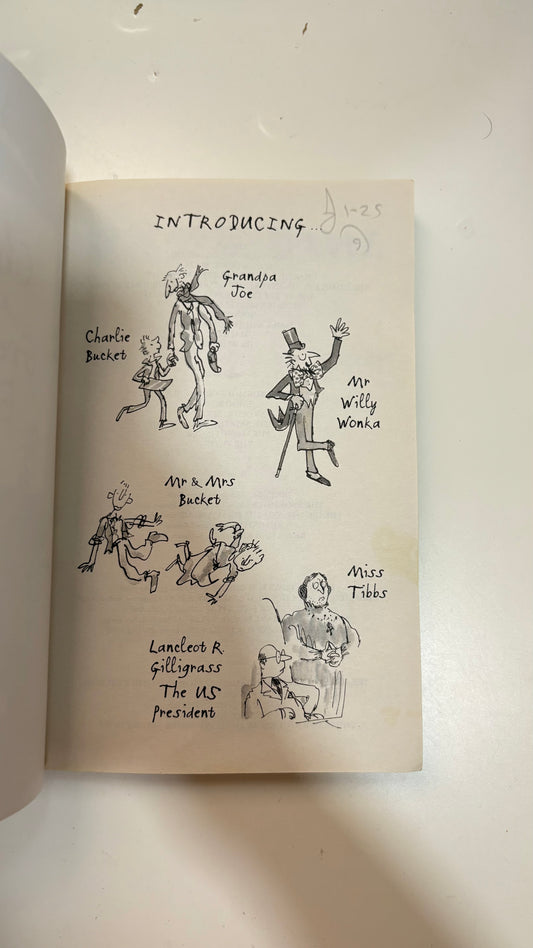 INTRODUCING...
1-25
9
Grandpa
Joe
Charlie
Bucket
Mr
Willy
Wonka
Mr & Mrs
Bucket
Miss
Tibbs
Lancleot R.
Gilligrass
The US
President